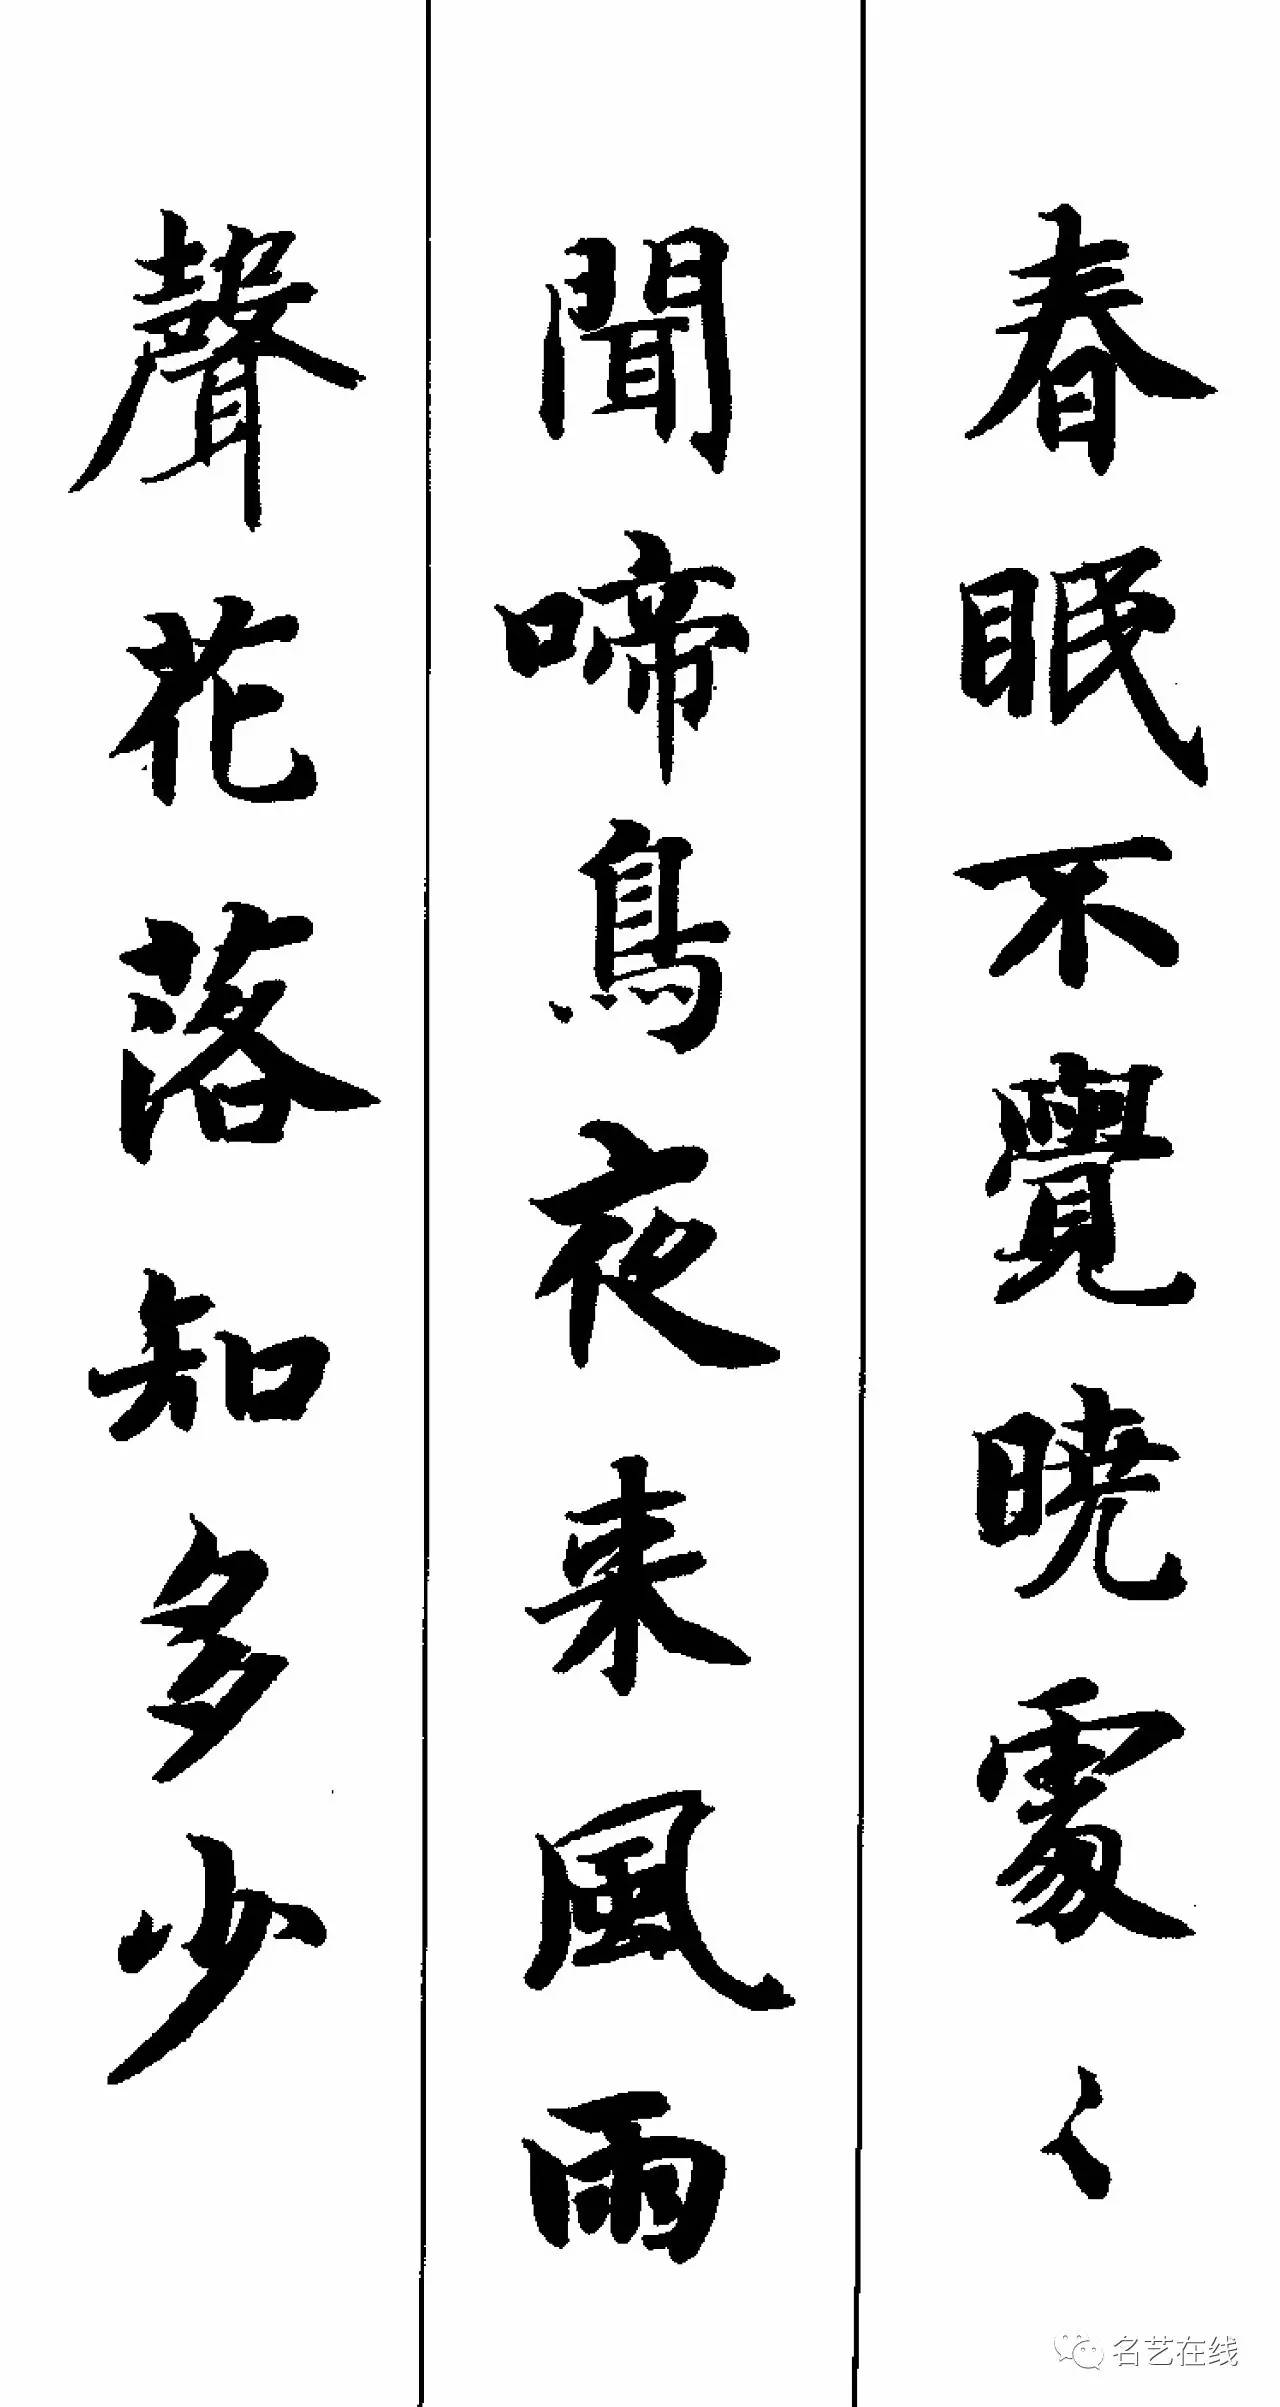 春眠不覺曉處〻
聞啼鳥夜来風雨
聲花落知多少
名艺在线